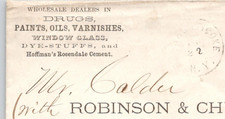 WHOLESALE DEALERS IN
DRUGS,
PAINTS, OILS, VARNISHES,
WINDOW GLASS,
DYE-STUFFS, and
Hoffman's Rosendale Cement.
2
Mr. Calder
with ROBINSON & CH